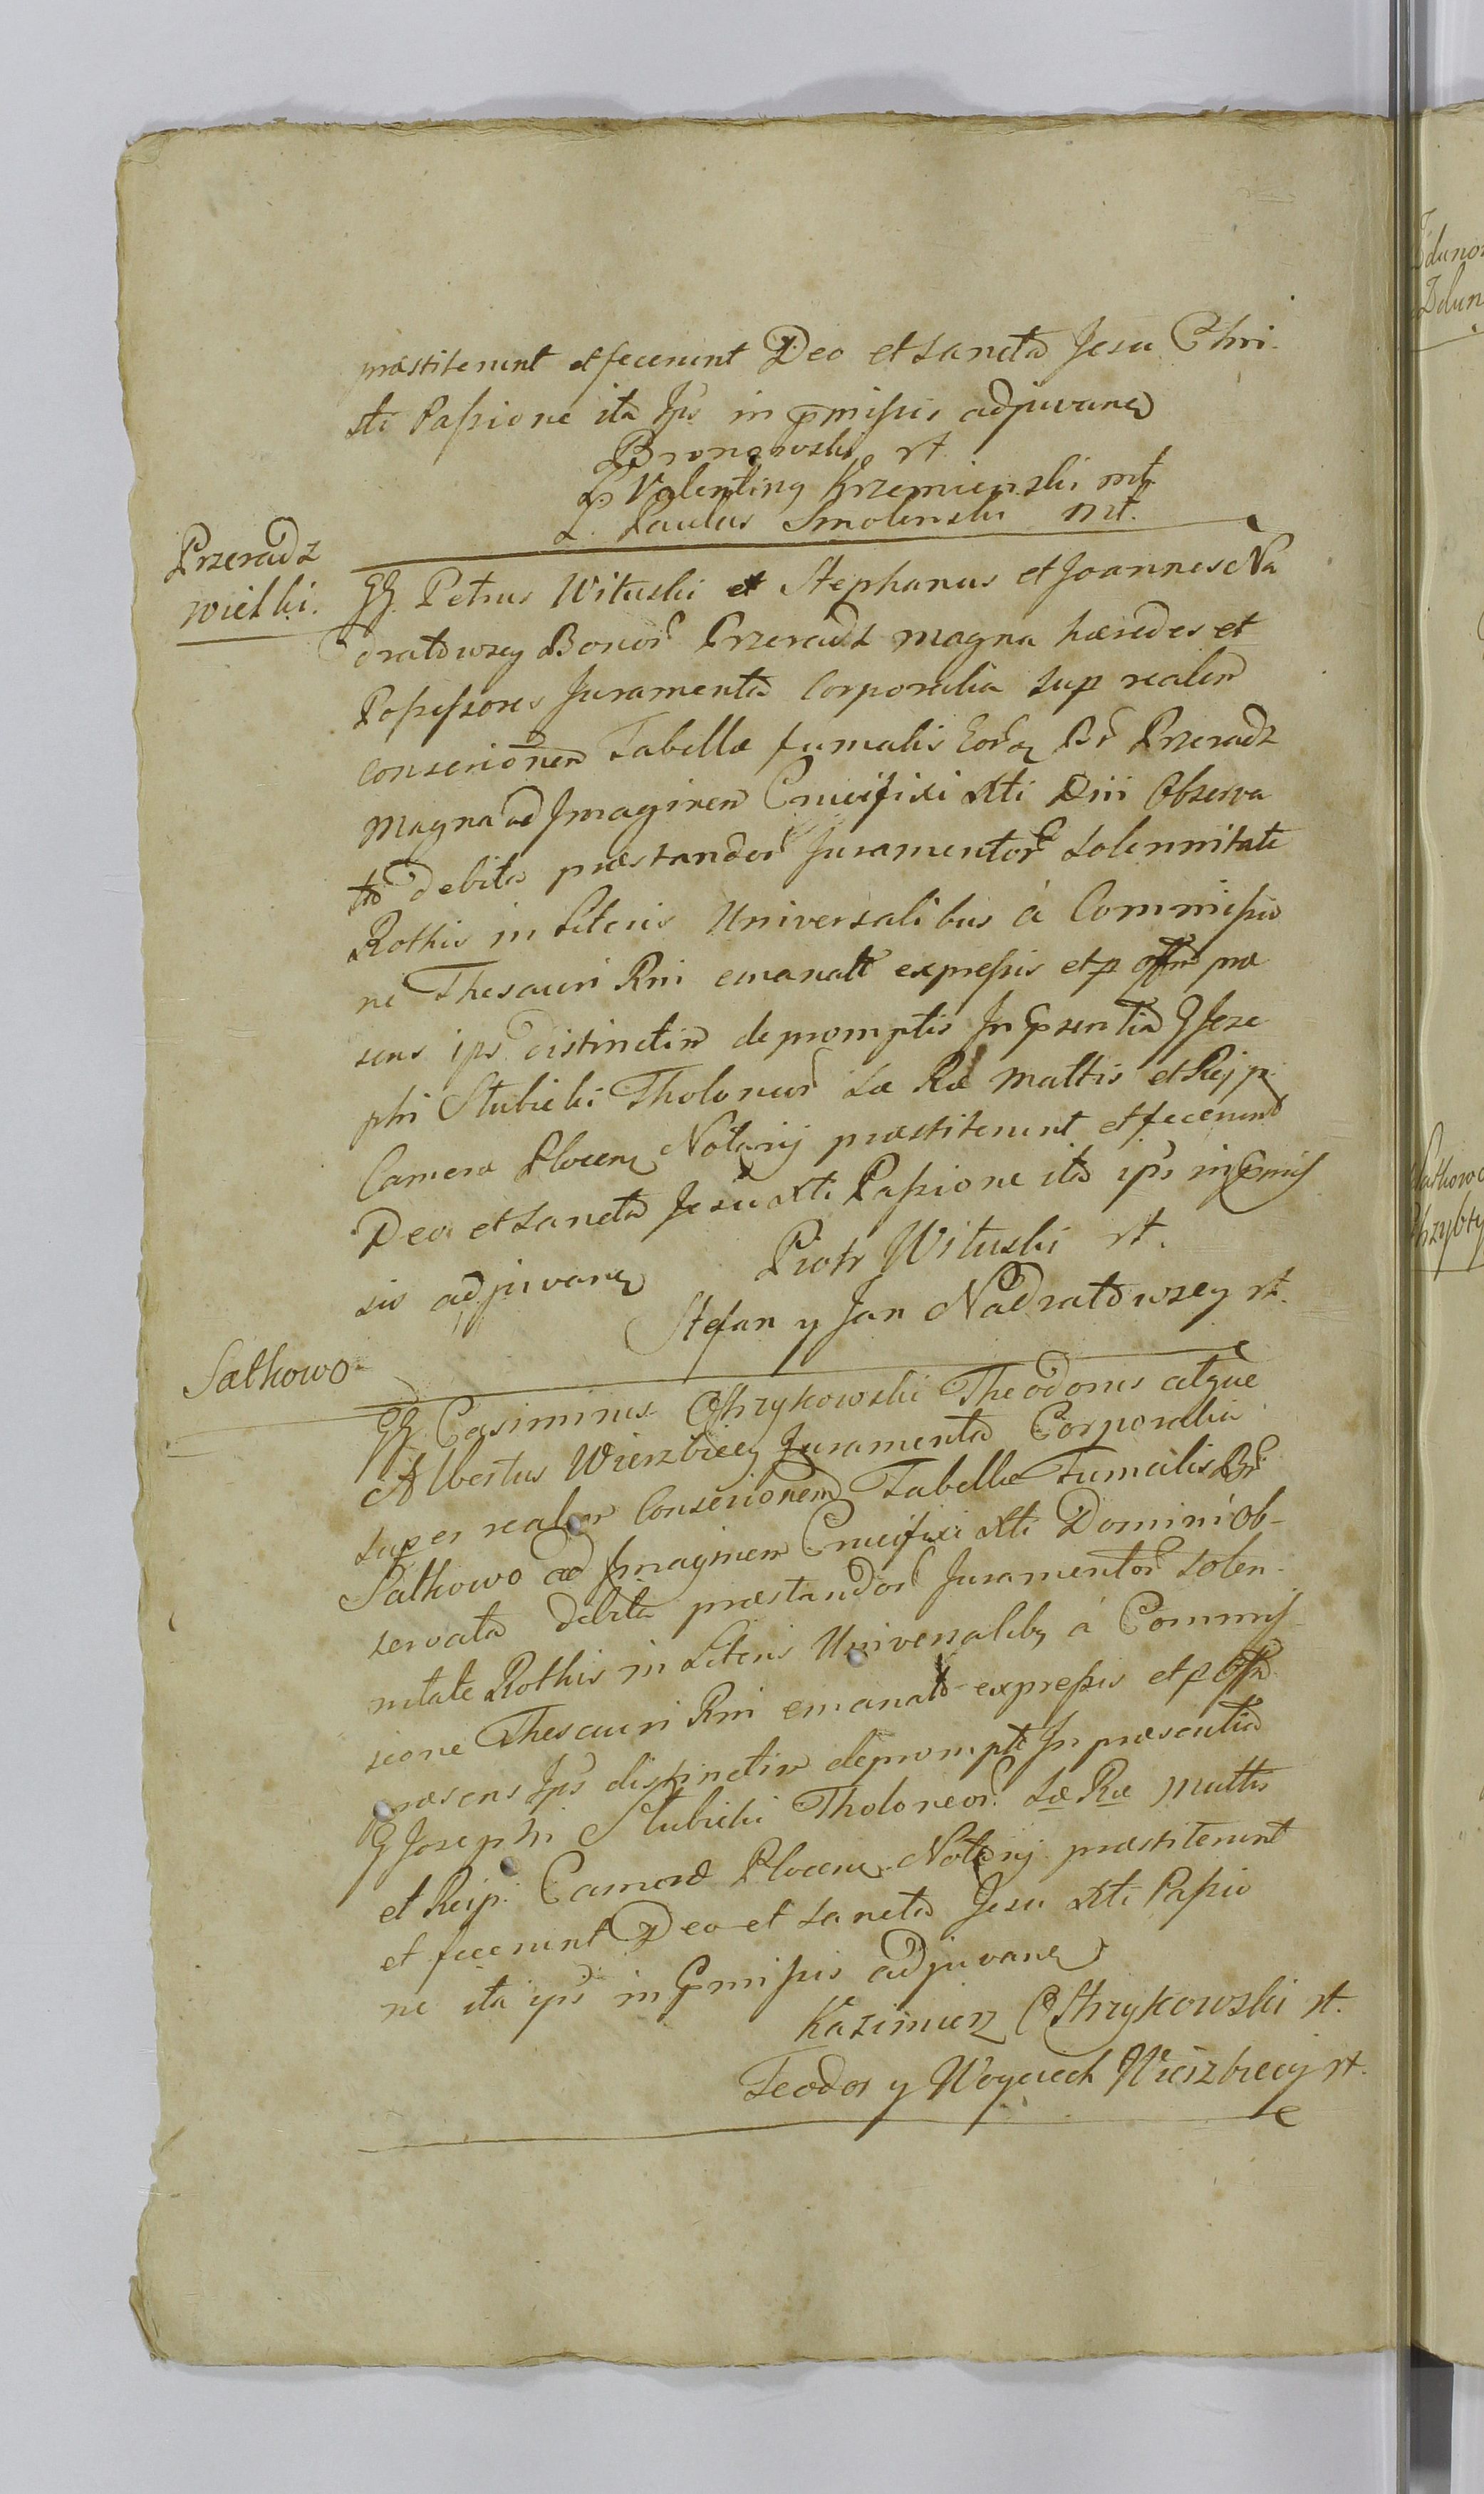 præstiterunt et fecerunt Deo et sancta Jesu Chri-
sti Passione ita Ips in pmissis adjuvane
Bronowski rt
L. Valentiny Krzemienski mt.
L. Paulus Smolenski mt.
Przeradz
wielki.
GG. Petrus Wituski et Stephanus et Joannes Na
dratowscy Bonor Przeradz magna hæredes et
Possessores Juramenta Corporalia sup realem
conserionem Tabellæ fumalis Eor Br Przeradz
Magna ad Imaginem Crucifixi Xti Dni Observa
ta debita præstandor Juramentor Solennitate
Rothis in Literis Universalibus à Commissio
ne Thesauri Rni emanatt expressis et p offm præ
sens ips distinctim depromptis In Epsentia G Joze
phi Stubicki Tholoneor Sæ Ræ Mattis et Reip
Camera Plocens Notarij præstiterunt et fecerunt
Deo et sancta Jesu Xti Passione ita ips in pmis
sis adjuvane Piotr Wituski rt.
Stefan y Jan Nadratowscy rt.
Sathowo
GG. Casimirus Ostrzykowski Theodorus atque
Albertus Wierzbiccy Juramenta Corporalia
super realem Conserionem Tabellæ Fumalis Br
Sathowo ad Imaginem Crucifixi Xti Domini Ob-
servata debita præstandor Juramentor Solen-
nitate Rothis in Literis Universalibq à Commis-
sione Thesauri Rni emanatt expressis et p Offm
præsens Ips distinctim deprompt In præsentia
G Josephi Stubicki Tholoneor. Sæ Ræ Mattis
et Reip. Camera Plocens Notarij præstiterunt
et fecerunt Deo et sancta Jesu Xti Passio
ne ita ips in pmissis adjuvane
Kazimierz Ostrzykowski rt.
Teodor y Woyciech Wierzbiccy rt.